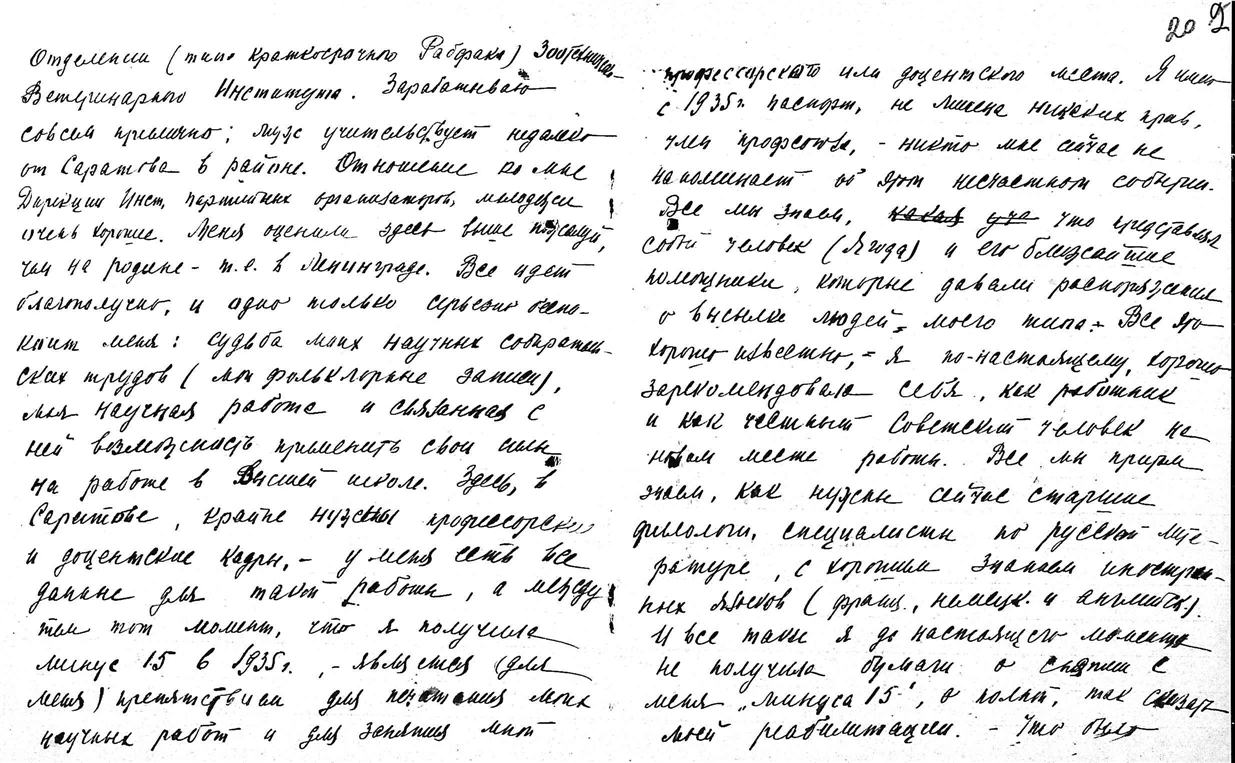 20
Отделении (типа краткосрочного Рабфака) Зоотехническо-
Ветеринарного Института. Зарабатываю
совсем прилично; муж учительствует недалеко
от Саратова в районе. Отношение ко мне
Дирекции Инст, партийных организаторов, молодежи
очень хорошие. Меня оценили здесь выше пожалуй,
чем на родине - т.е. в Ленинграде. Все идет
благополучно, и одно только серьезно беспо-
коит меня: судьба моих научных собиратель-
ских трудов (мои фольклорные записи),
моя научная работа и связанная с
ней возможность применить свои силы
на работе в Высшей школе. Здесь, в
Саратове, крайне нужны профессорские
и доцентские кадры, - у меня есть все
данные для такой работы, а между
тем тот момент, что я получила
минус 15 в 1935г., - является (для
меня) препятствием для печатания моих
научных работ и для занятия мной
профессорского или доцентского места. Я имею
с 1935г. паспорт, не лишена никаких прав,
член профсоюза, - никто мне сейчас не
напоминает об этом несчастном событии.
Все мы знаем, что представлял
собой человек (Ягода) и его ближайшие
помощники, которые давали распоряжения
о высылке людей - моего типа. - Все это
хорошо известно, - я по-настоящему, хорошо
зарекомендовала себя, как работник
и как честный Советский человек на
новом месте работы. Все мы
знаем, как нужны сейчас старшие
филологи, специалисты по русской лите-
ратуре, с хорошим знанием иностран-
ных языков (франц., немецк. и английск.).
И все таки я до настоящего момента
не получила бумаги о снятии с
меня "минуса 15", о полной, так сказать
моей реабилитации. - Что было